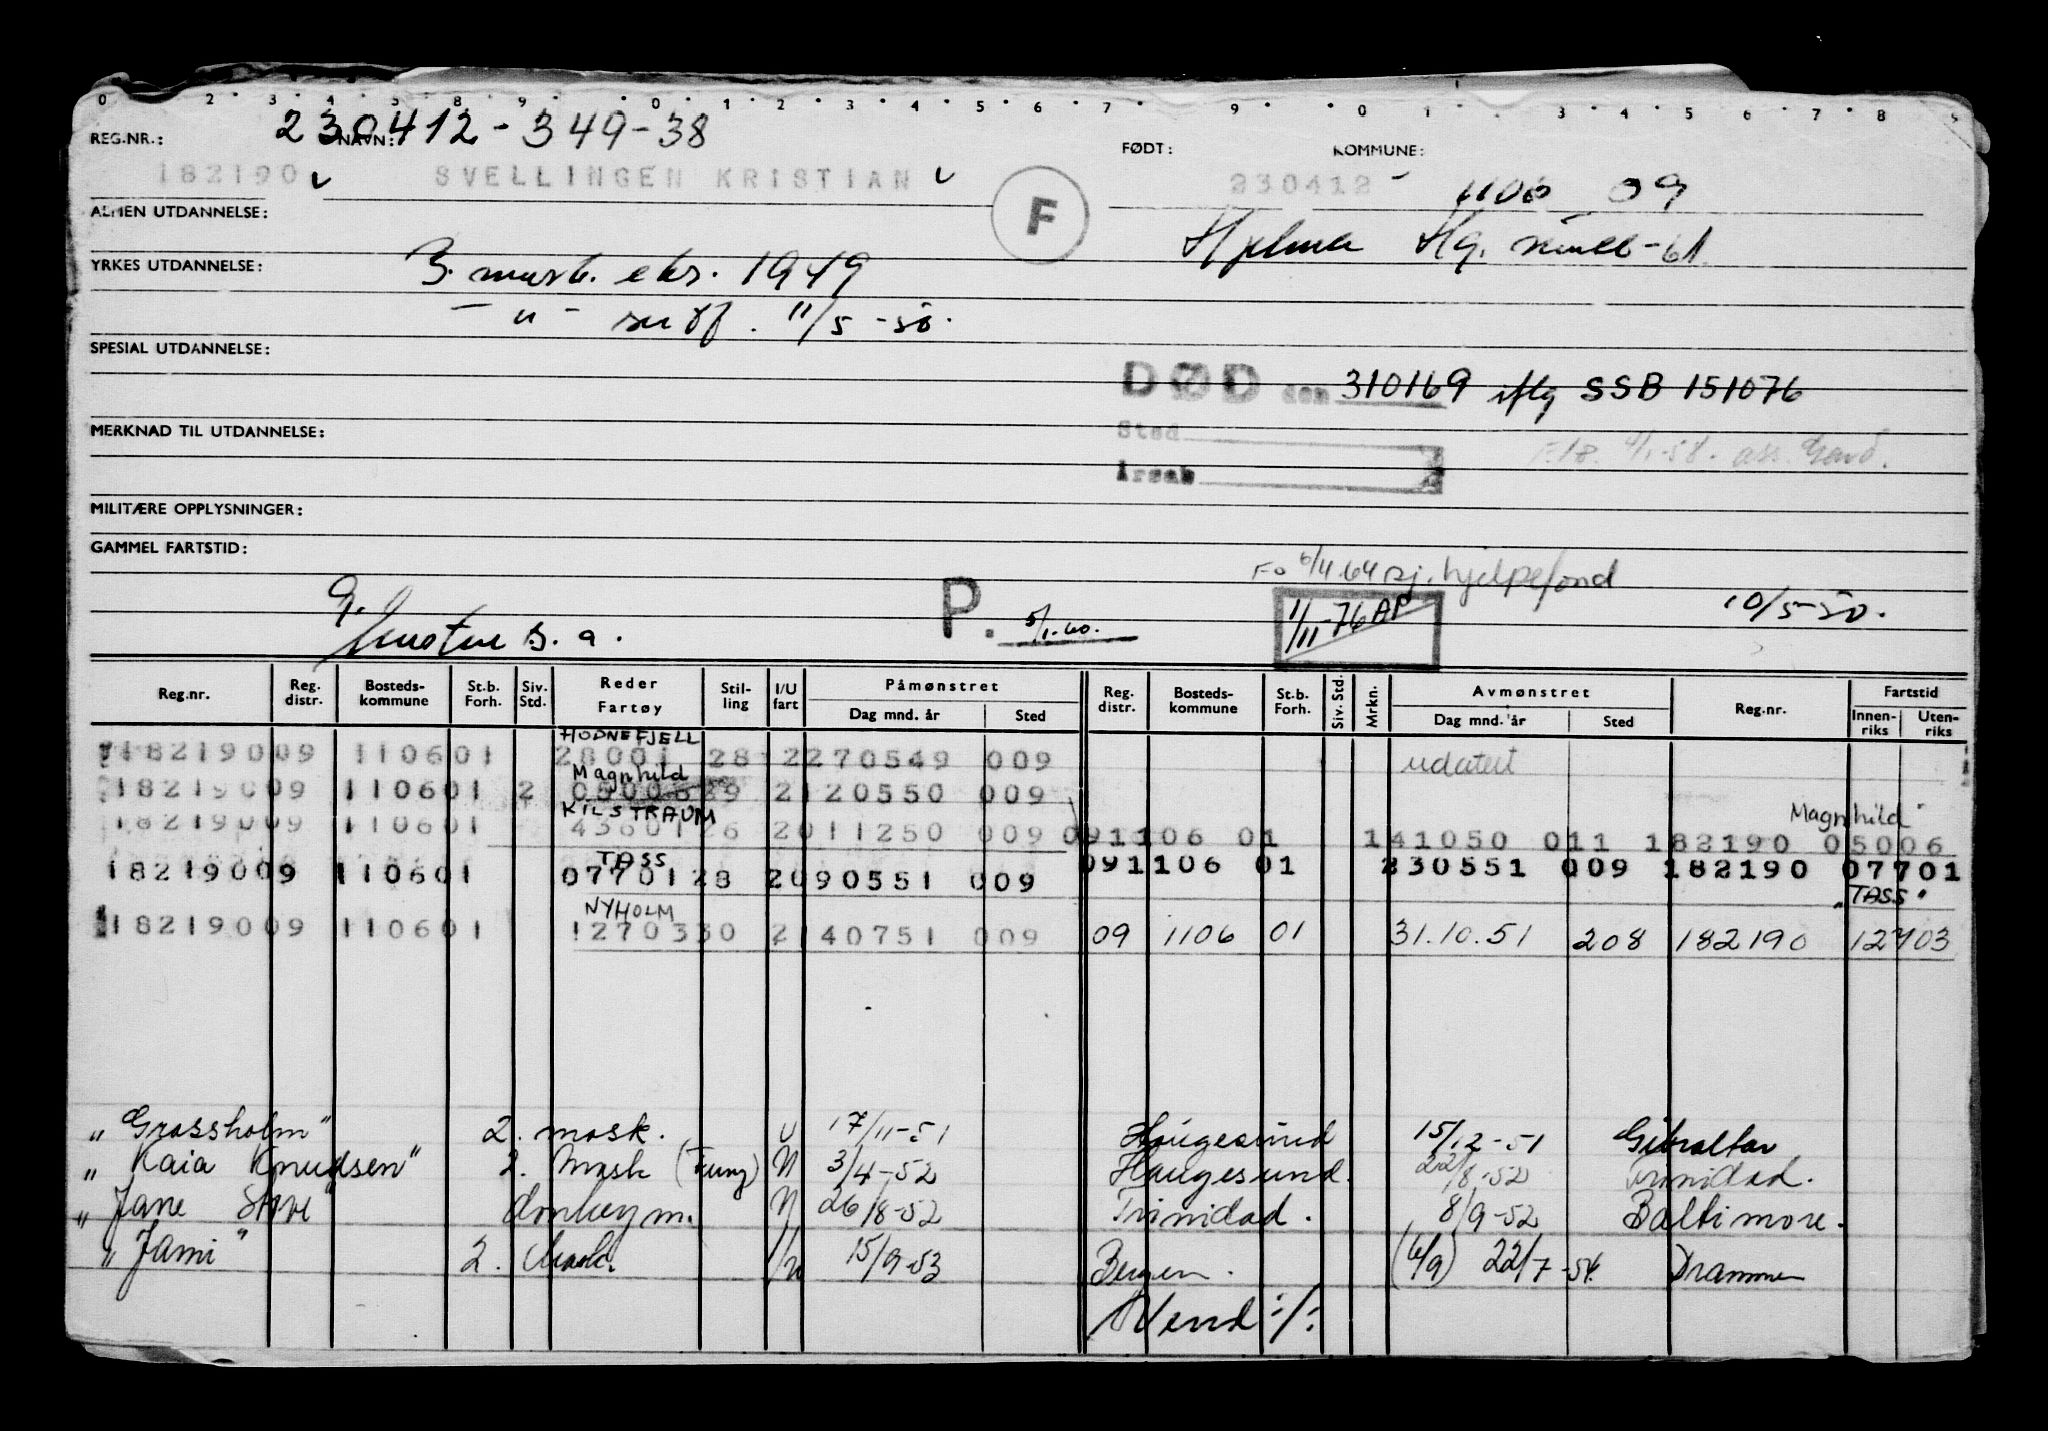 0 2 3 4 5 8 9 0 1 2 3 4 5 6 7 9 0 1 3 4 5 6 7 8
REG.NR.: NAVN: 230412-349-38 FØDT: KOMMUNE:
182190 SVELLINGEN KRISTIAN 230412 1106 09
F
ALMEN UTDANNELSE:
YRKES UTDANNELSE: 3. mask. eks. 1949
- " - 11/5-50.
SPESIAL UTDANNELSE:
DØD den 310169 iflg SSB 151076
MERKNAD TIL UTDANNELSE: Sted
Årsak
MILITÆRE OPPLYSNINGER:
GAMMEL FARTSTID:
Fo 6/4.64 sj. hjelpefond
P. 5/1.60. 1/11-76 AP 10/5-50.
s. a.
Reg.nr. Reg. distr. Bosteds- kommune St.b. Forh. Siv. Std. Reder Fartøy Stil- ling I/U fart Påmønstret Dag mnd. år Sted Reg. distr. Bosteds- kommune St.b. Forh. Siv. Std. Mrkn. Avmønstret Dag mnd. år Sted Reg.nr. Fartstid Innen- riks Uten- riks
HODNEFJELL
18219009 110601 28001 28 2270549 009 udatert
Magnhild
18219009 110601 2 0500629 2120550 009
KILSTRAUM Magnhild"
18219009 110601 4360126 2011250 009 091106 01 141050 011 182190 05006
TASS
18219009 110601 0770128 2090551 009 091106 01 230551 009 182190 07701
NYHOLM "TASS"
18219009 110601 1270330 2140751 009 09 1106 01 31.10.51 208 182190 12703
"Grassholm" 2. mask. U 17/11-51 Haugesund 15/12-51 Gibraltar
"Kaia Knudsen" 2. Mask (Fung) U 3/4-52 Haugesund. 22/8-52 Trinidad.
"Jane Stove" donkeym. U 26/8-52 Trinidad. 8/9-52 Baltimore.
"Jami" 2. Mask. I/U 15/9-53 Bergen. (6/9) 22/7-54. Drammen
Vend :/: